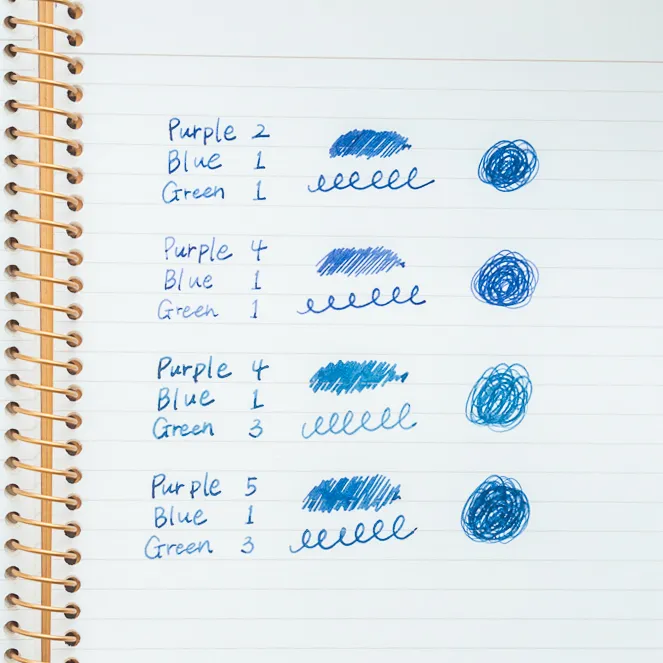 Purple 2
Blue 1
Green 1
Purple 4
Blue 1
Green 1
Purple 4
Blue 1
Green 3
Purple 5
Blue 1
Green 3